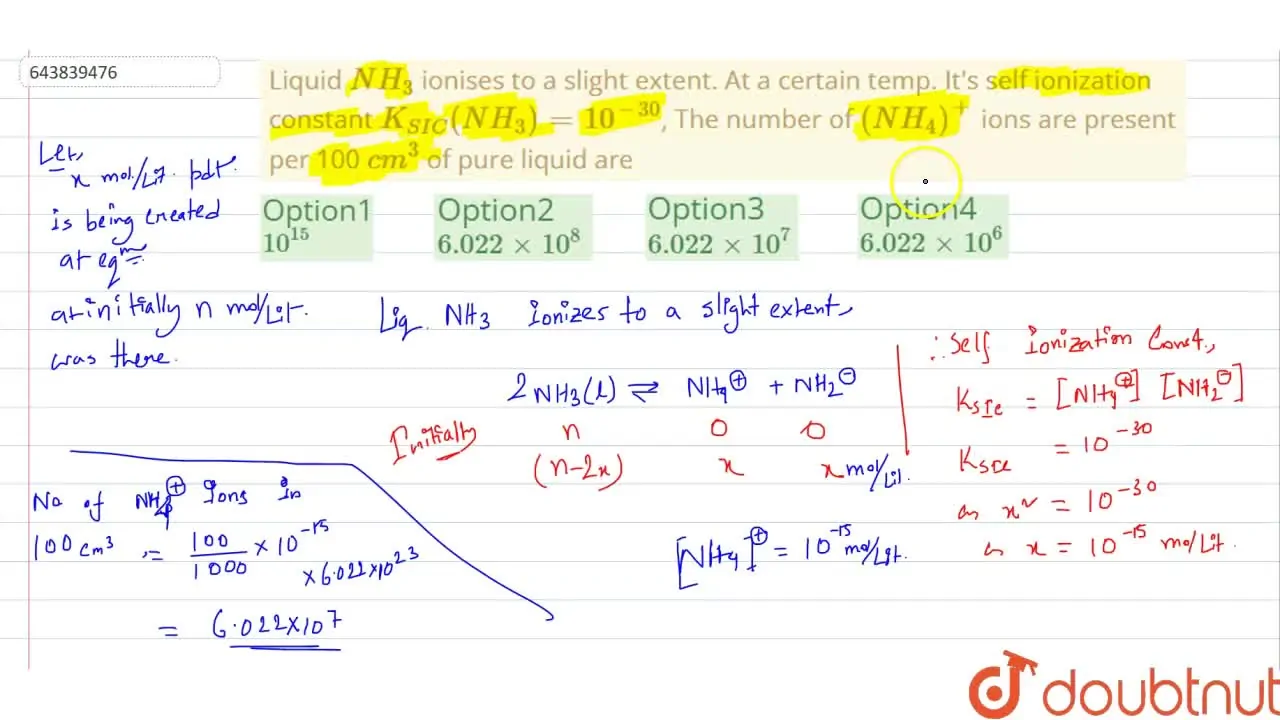 643839476
Liquid NH₃ ionises to a slight extent. At a certain temp. It's self ionization
constant K_SIC(NH₃) = 10⁻³⁰, The number of (NH₄)⁺ ions are present
per 100 cm³ of pure liquid are
Option1
10¹⁵
Option2
6.022 × 10⁸
Option3
6.022 × 10⁷
Option4
6.022 × 10⁶
Let,
x mol/Lit. pdt.
is being created
at eqᵐ
at initially n mol/Lit.
was there.
Liq. NH3 Ionizes to a slight extent,
2NH3(l) ⇌ NH4⊕ + NH2⊖
Initially n 0 0
(n-2x) x x mol/Lit.
∴ Self Ionization Const.,
K_SIC = [NH4⊕] [NH2⊖]
K_SIC = 10⁻³⁰
x² = 10⁻³⁰
x = 10⁻¹⁵ mol/Lit.
[NH4]⊕ = 10⁻¹⁵ mol/Lit.
No of NH4⊕ Ions In
100 cm³ = 100/1000 × 10⁻¹⁵
× 6.022×10²³
= 6.022×10⁷
doubtnut